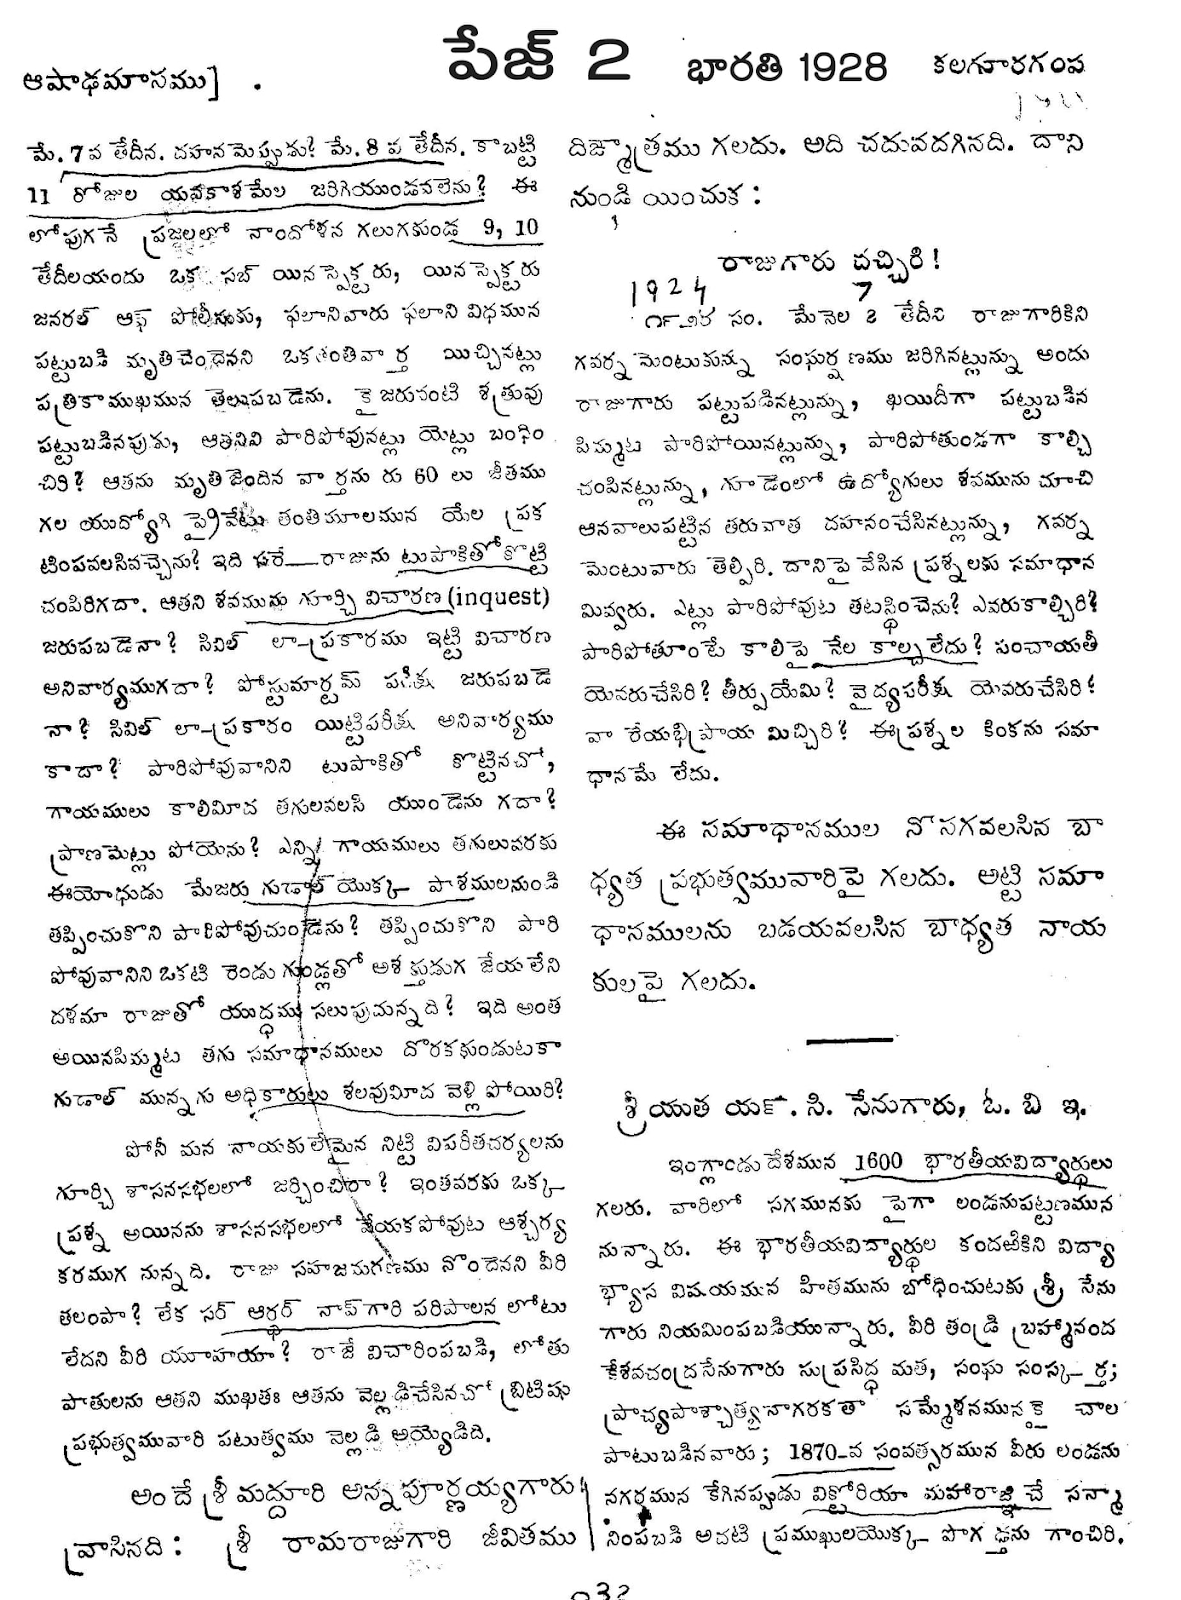 ఆషాఢమాసము]
పేజ్ 2 భారతి 1928 కలగూరగంప
మే. 7వ తేదీన. దహనమెప్పుడు? మే. 8 వ తేదీన. కాబట్టి
11 రోజుల యవకాశమేల జరిగియుండవలెను? ఈ
లోపుగనే ప్రజలలో నాందోళన గలుగకుండ 9, 10
తేదీలయందు ఒక సబ్ యినస్పెక్టరు, యినస్పెక్టరు
జనరల్ ఆఫ్ పోలీసుకు, ఫలానివారు ఫలాని విధమున
పట్టుబడి మృతిచెందెనని ఒకతంతివార్త యిచ్చినట్లు
పత్రికాముఖమున తెలుపబడెను. కైజరువంటి శత్రువు
పట్టుబడినపుడు, ఆతనివి పారిపోవునట్లు యెట్లు బంధిం
చిరి? ఆతను మృతిజెందిన వార్తను రు 60 లు జీతము
గల యుద్యోగి ప్రైవేటు తంతిమూలమున యేల ప్రక
టింపవలసివచ్చెను? ఇది సరే—రాజును టుపాకితోకొట్టి
చంపిరిగదా. ఆతని శవమును గూర్చి విచారణ (inquest)
జరుపబడెనా? సివిల్ లా-ప్రకారము ఇట్టి విచారణ
అనివార్యముగదా? పోస్టుమార్టమ్ పరీక్ష జరుపబడె
నా? సివిల్ లా-ప్రకారం యిట్టిపరీక్ష అనివార్యము
కాదా? పారిపోవువానిని టుపాకితో కొట్టినచో,
గాయములు కాలిమీద తగులవలసి యుండెను గదా?
ప్రాణమెట్లు పోయెను? ఎన్ని గాయములు తగులువరకు
ఈయోధుడు మేజరు గుడాల్ యొక్క పాశములనుండి
తప్పించుకొని పారిపోవుచుండెను? తప్పించుకొని పారి
పోవువానిని ఒకటి రెండు గుండ్లతో అశక్తుడుగ జేయలేని
దళమా రాజుతో యుద్ధము సలుపుచున్నది? ఇది అంత
అయినపిమ్మట తగు సమాధానములు దొరకకుండుటకా
గుడాల్ మున్నగు అధికారులు శలవుమీద వెళ్లిపోయిరి?
పోనీ మన నాయకులేమైన నిట్టి విపరీతచర్యలను
గూర్చి శాసనసభలలో జర్చించిరా? ఇంతవరకు ఒక్క
ప్రశ్న అయినను శాసనసభలలో వేయకపోవుట ఆశ్చర్య
కరముగ నున్నది. రాజు సహజమరణము నొందెనని వీరి
తలంపా? లేక సర్ ఆర్థర్ నాప్‌గారి పరిపాలన లోటు
లేదని వీరి యూహయా? రాజే విచారింపబడి, లోతు
పాతులను ఆతని ముఖతః ఆతను వెల్లడిచేసినచో బ్రిటిషు
ప్రభుత్వమువారి పటుత్వము వెల్లడి అయ్యెడిది.
అందే శ్రీ మద్దూరి అన్నపూర్ణయ్యగారు
వ్రాసినది: శ్రీ రామరాజుగారి జీవితము
దిఙ్మాత్రము గలదు. అది చదువదగినది. దాని
నుండి యించుక:
రాజుగారు చచ్చిరి!
1924 7
౧౯౨౪ సం. మేనెల ౭ తేదీని రాజుగారికిని
గవర్నమెంటుకున్ను సంఘర్షణము జరిగినట్లున్ను అందు
రాజుగారు పట్టుపడినట్లున్ను, ఖయిదీగా పట్టుబడిన
పిమ్మట పారిపోయినట్లున్ను, పారిపోతుండగా కాల్చి
చంపినట్లున్ను, గూడెంలో ఉద్యోగులు శవమును చూచి
ఆనవాలుపట్టిన తరువాత దహనంచేసినట్లున్ను, గవర్న
మెంటువారు తెల్పిరి. దానిపై వేసిన ప్రశ్నలకు సమాధాన
మివ్వరు. ఎట్లు పారిపోవుట తటస్థించెను? ఎవరుకాల్చిరి?
పారిపోతూంటే కాలిపై నేల కాల్చలేదు? పంచాయతీ
యెవరుచేసిరి? తీర్పుయేమి? వైద్యపరీక్ష యెవరుచేసిరి?
వారేయభిప్రాయ మిచ్చిరి? ఈప్రశ్నల కింకను సమా
ధానమే లేదు.
ఈ సమాధానముల నొసగవలసిన బా
ధ్యత ప్రభుత్వమువారిపై గలదు. అట్టి సమా
ధానములను బడయవలసిన బాధ్యత నాయ
కులపై గలదు.
శ్రీయుత యన్. సి. సేనుగారు, ఓ. బి ఇ.
ఇంగ్లాండుదేశమున 1600 భారతీయవిద్యార్థులు
గలరు. వారిలో సగమునకు పైగా లండనుపట్టణమున
నున్నారు. ఈ భారతీయవిద్యార్థుల కందఱికిని విద్యా
భ్యాస విషయమున హితమును బోధించుటకు శ్రీ సేను
గారు నియమింపబడియున్నారు. వీరి తండ్రి బ్రహ్మానంద
కేశవచంద్రసేనుగారు సుప్రసిద్ధ మత, సంఘ సంస్కర్త;
ప్రాచ్యపాశ్చాత్యనాగరకతా సమ్మేళనమునకై చాల
పాటుబడినవారు; 1870-వ సంవత్సరమున వీరు లండను
నగరమున కేగినప్పుడు విక్టోరియా మహారాజ్ఞిచే సన్మా
నింపబడి అచటి ప్రముఖులయొక్క పొగడ్తను గాంచిరి.